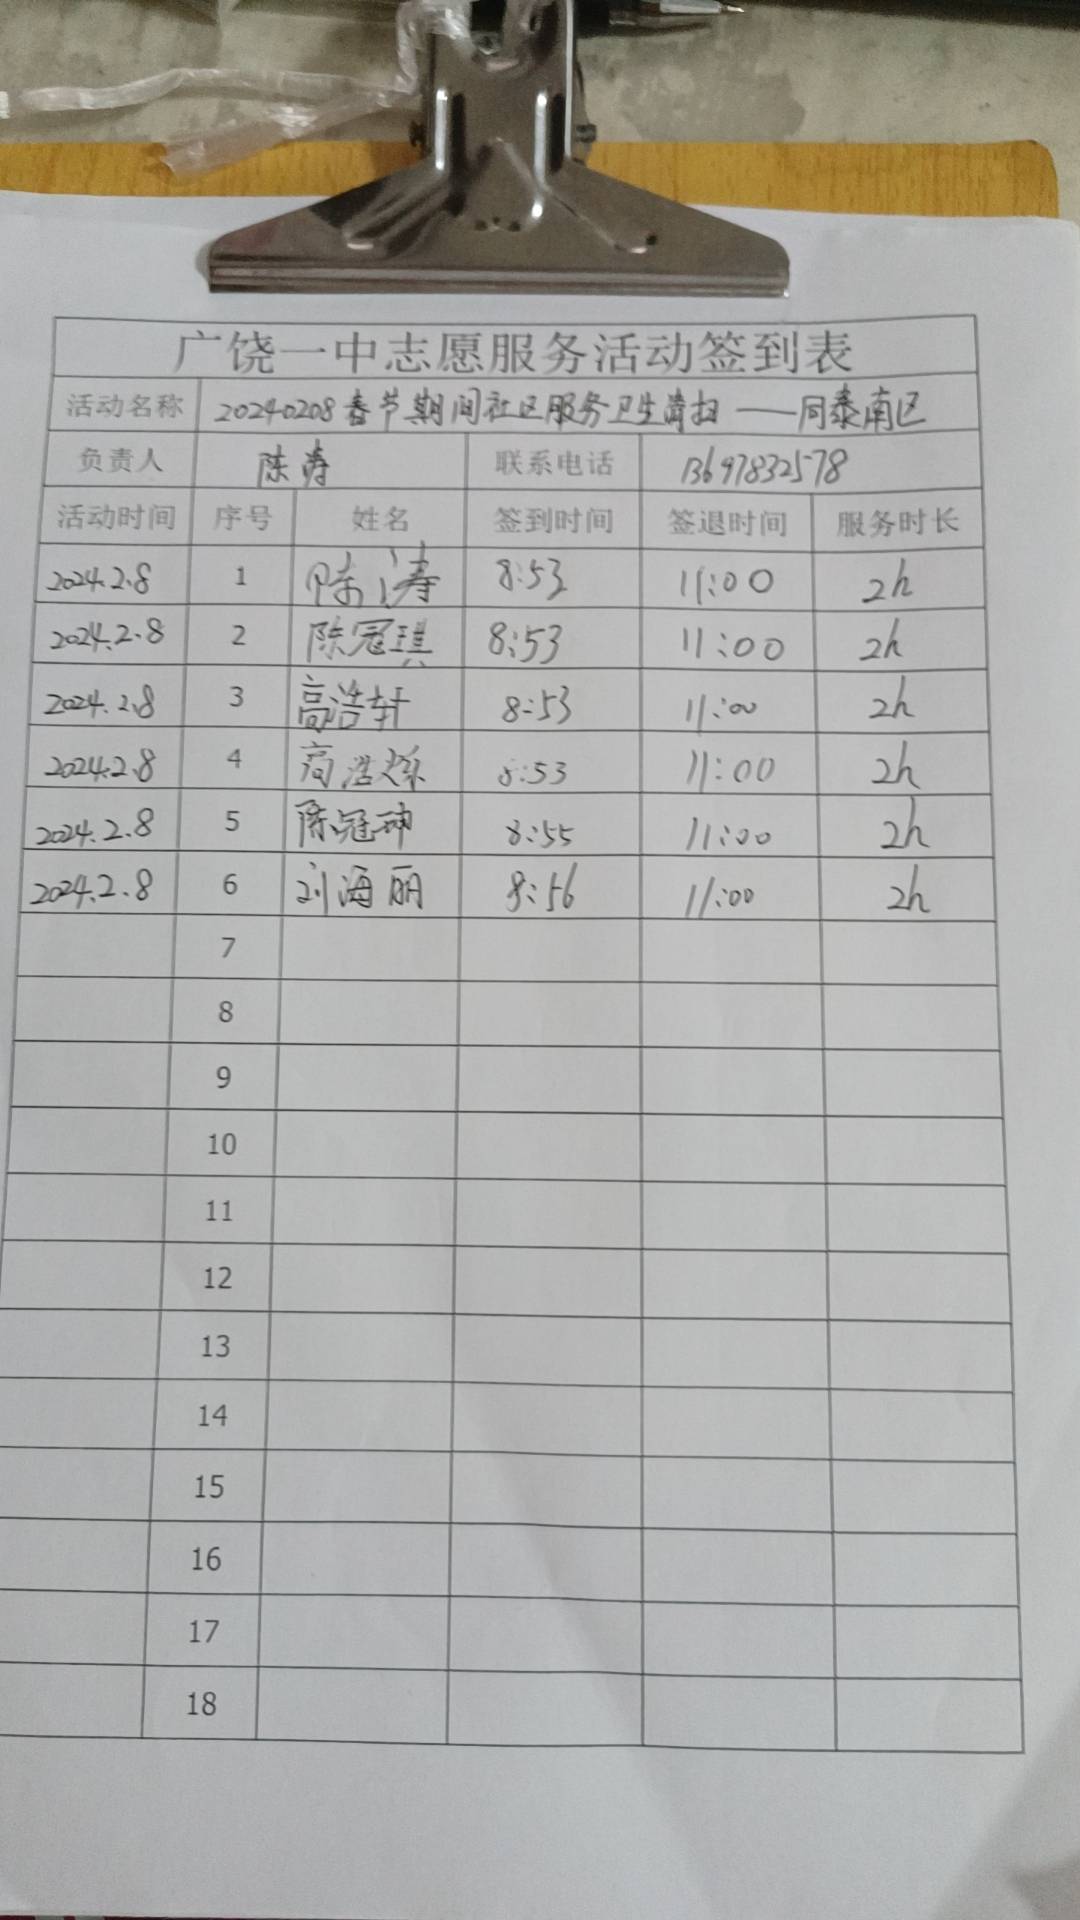 广饶一中志愿服务活动签到表
活动名称 20240208春节期间社区服务卫生清扫——同泰南区
负责人 陈涛 联系电话 13697832578
活动时间 序号 姓名 签到时间 签退时间 服务时长
2024.2.8 1 陈涛 8:53 11:00 2h
2024.2.8 2 陈冠琪 8:53 11:00 2h
2024.2.8 3 高浩轩 8:53 11:00 2h
2024.2.8 4 高浩 8:53 11:00 2h
2024.2.8 5 陈冠 8:55 11:00 2h
2024.2.8 6 刘海丽 8:56 11:00 2h
7
8
9
10
11
12
13
14
15
16
17
18